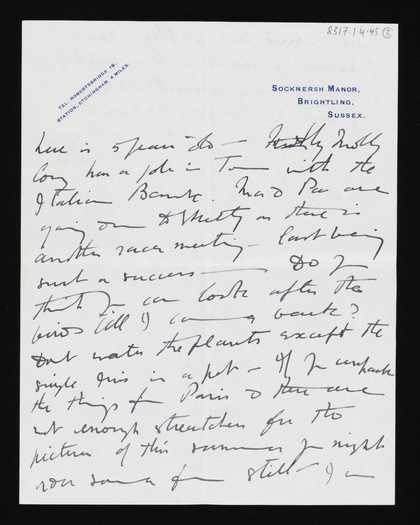 8317.1.4.45 (3)
TEL. ROBERTSBRIDGE 18.
STATION, ETCHINGHAM 4 MILES.
SOCKNERSH MANOR,
BRIGHTLING,
SUSSEX.
here is 5 years old — Molly
has a job in Town with the
Italian Bank. Ma & Pa are
going on as there is
another race meeting – last being
such a success — Do you
think you can look after the
birds till I come back?
Dont water the plants except the
single Iris in a pot – If you unpack
the things from Paris & there are
not enough stretchers for the
pictures of this summer you might
some from Still – I am